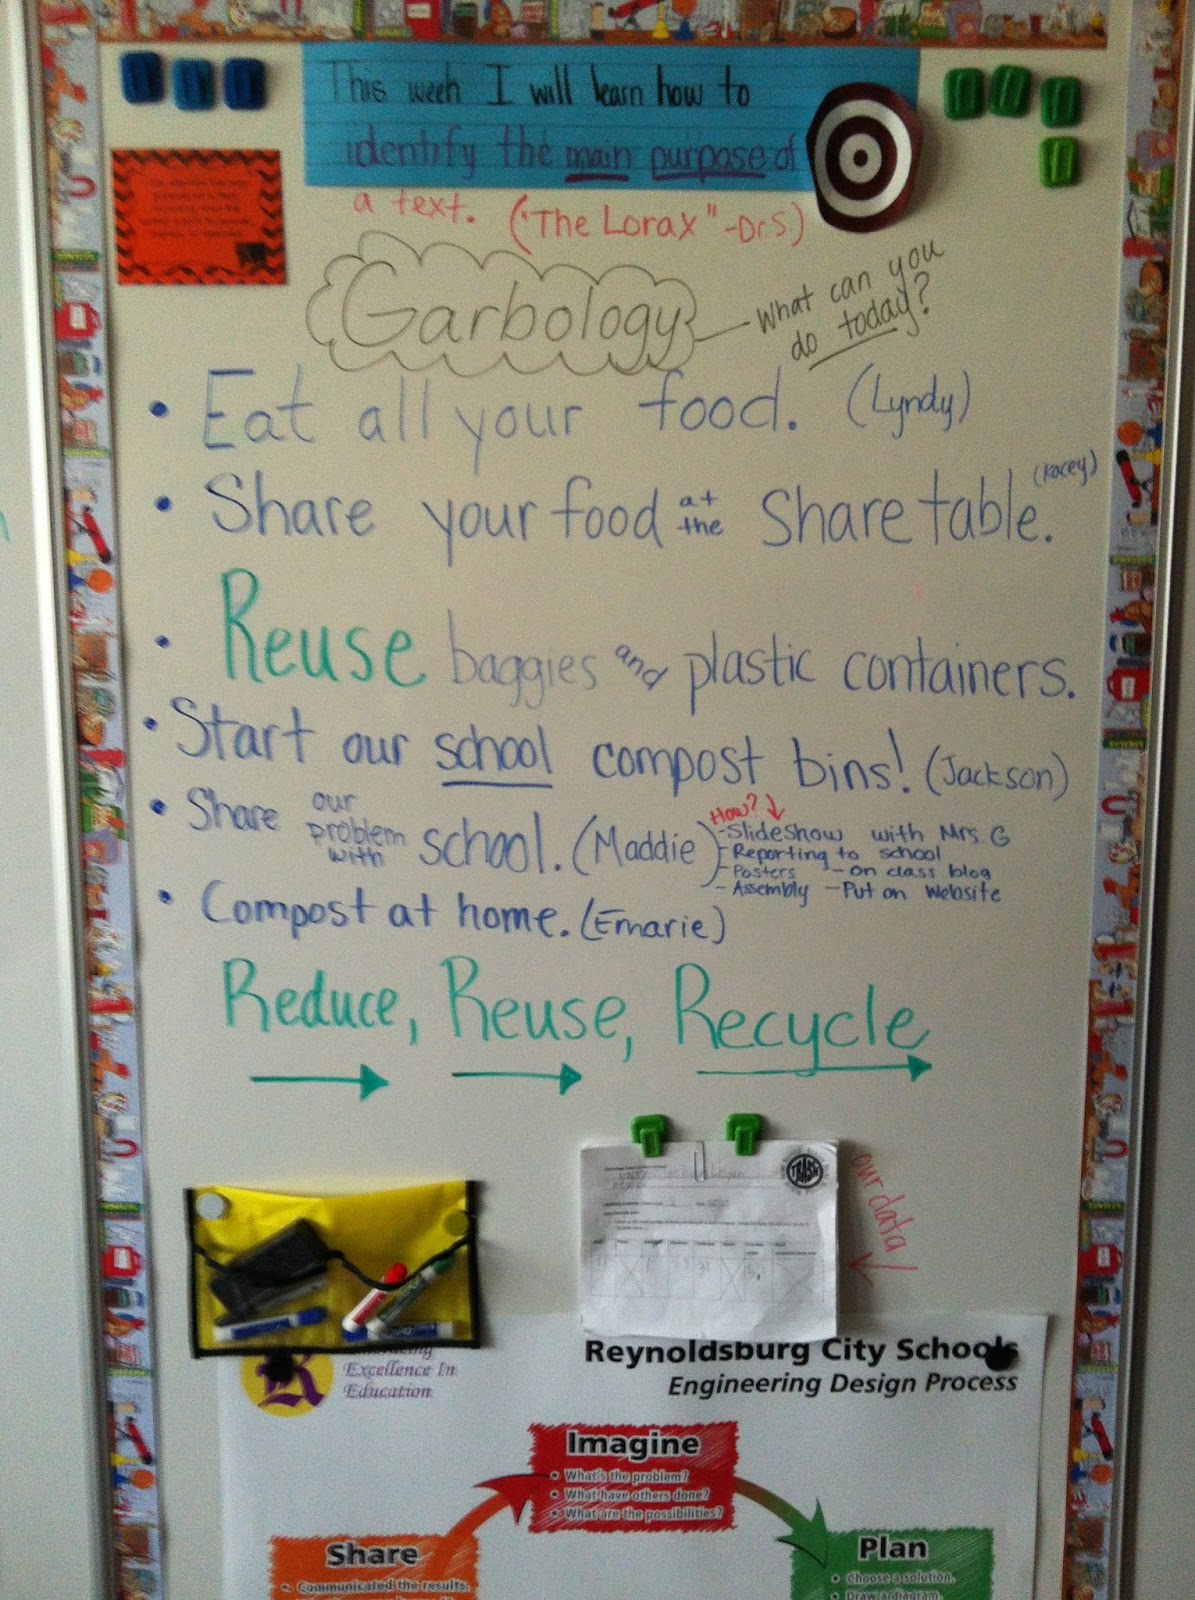 This week I will learn how to
identify the main purpose of
a text. ("The Lorax" -Dr S.)
Garbology
What can you
do today?
• Eat all your food. (Lyndy)
• Share your food at the Share table. (Kacey)
• Reuse baggies and plastic containers.
• Start our school compost bins! (Jackson)
• Share our problem with school. (Maddie)
How?
- Slideshow with Mrs. G
- Reporting to school
- Posters - on class blog
- Assembly - Put on website
• Compost at home. (Emarie)
Reduce, Reuse, Recycle
TRASH
our data
Excellence In
Education
Reynoldsburg City Schools
Engineering Design Process
Imagine
• What's the problem?
• What have others done?
• What are the possibilities?
Share
• Communicated the results.
Plan
• Choose a solution.
• Draw a diagram.